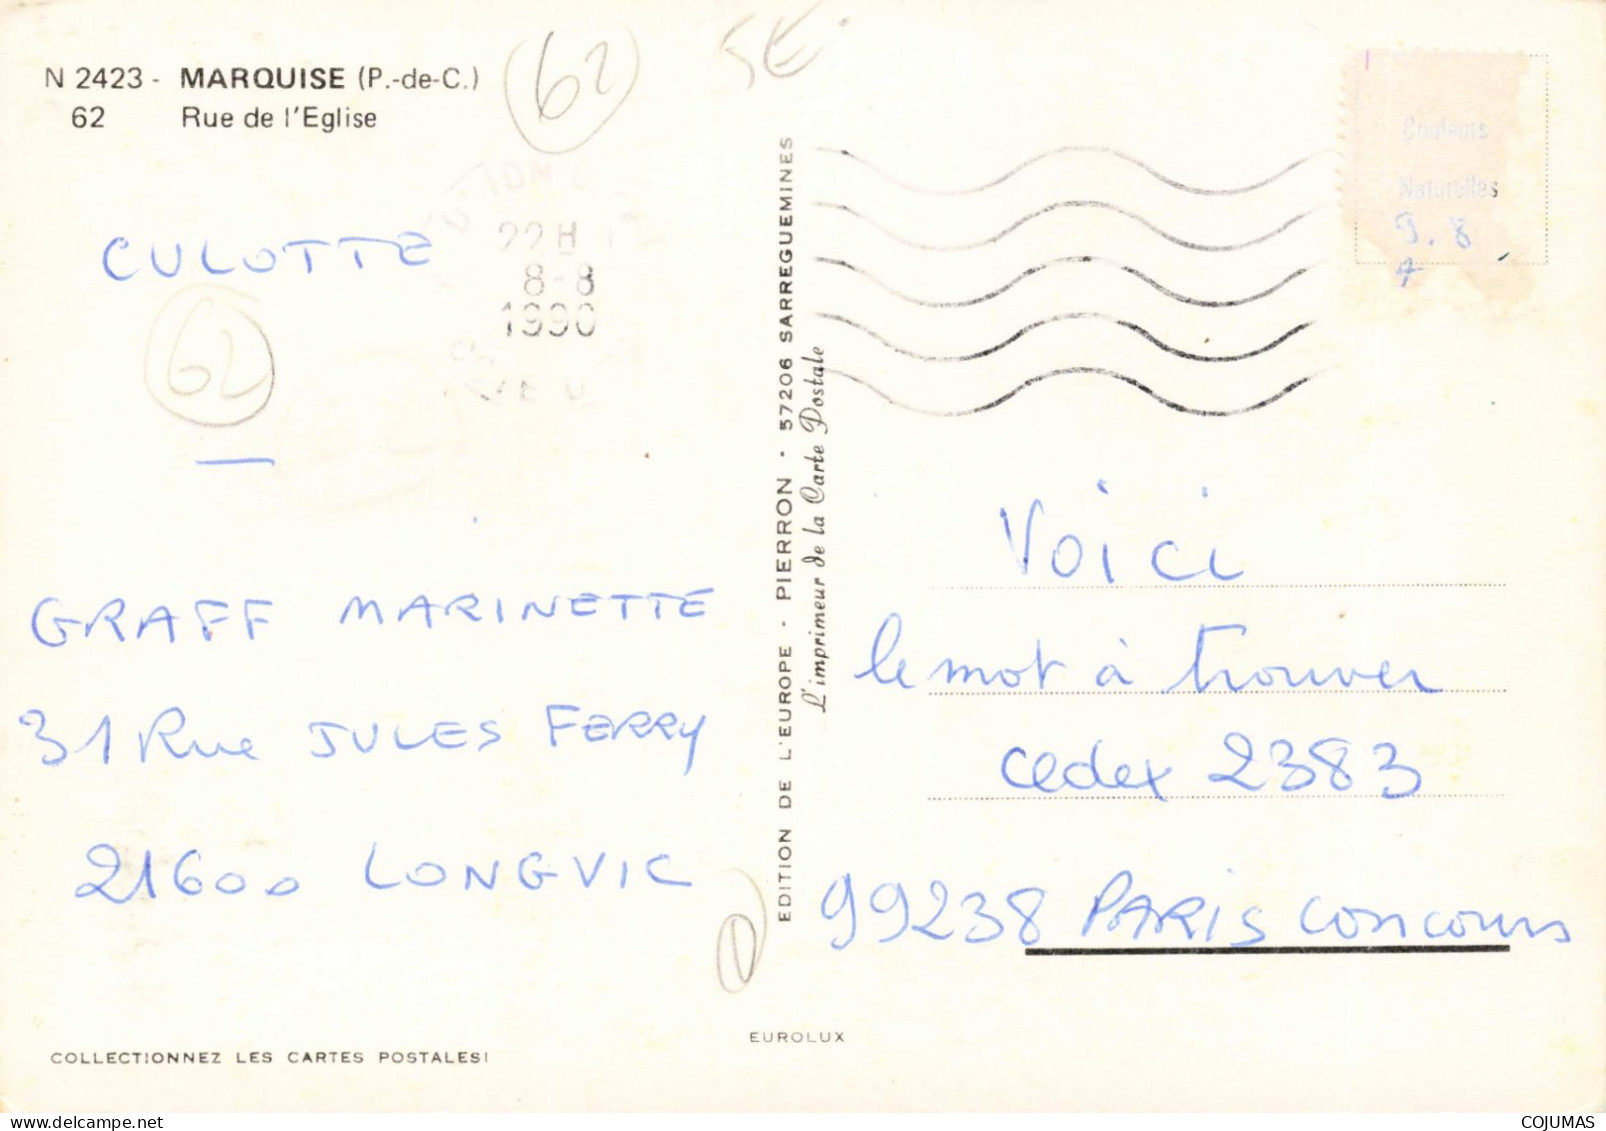 N 2423 - MARQUISE (P.-de-C.)
62 Rue de l'Eglise
62
5E
22H
8-8
1990
CULOTTE
62
GRAFF MARINETTE
31 Rue JULES FERRY
21600 LONGVIC
COLLECTIONNEZ LES CARTES POSTALES!
EDITION DE L'EUROPE - PIERRON - 57206 SARREGUEMINES
L'imprimeur de la Carte Postale
EUROLUX
Couleurs
Naturelles
9.8
7
Voici
le mot à trouver
cedex 2383
99238 PARIS concours
COJUMAS